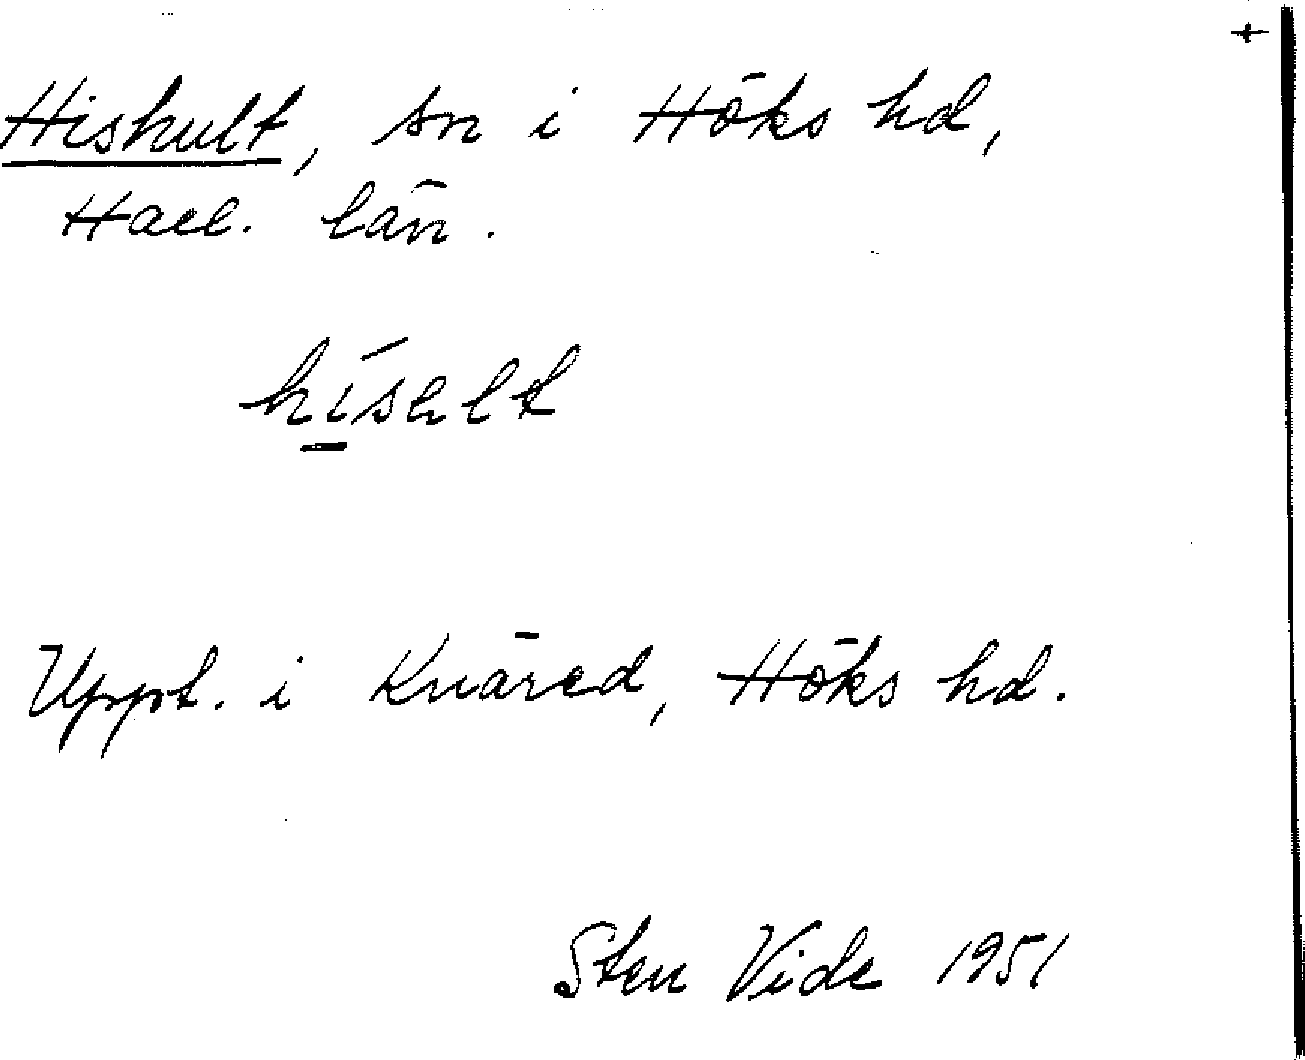 +
Hishult, sn i Höks hd,
Hall. län.
híselt
Uppt. i Knäred, Höks hd.
Sten Vide 1951